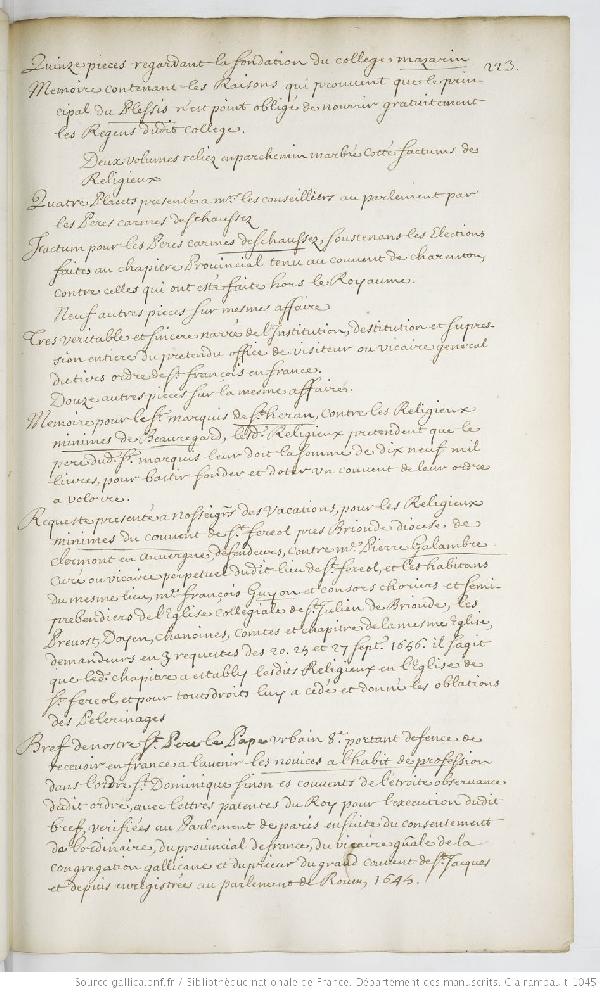 223.
Quinze pieces regardant la fondation du college mazarin
Memoire contenant les Raisons qui prouvent que le prin-
cipal du Plessis n'est point obligé de nourrir gratuitement
les Regens dudit College.
Deux volumes reliez en parchemin marbré cotté factums de
Religieux
Quatre Placets presenté a mrs. les conseilliers au parlement par
les Peres carmes deschaussez
Factum pour les Peres carmes deschaussez, soutenans les Elections
faite au chapitre Provincial tenu au couvent de charanton,
contre celles qui ont esté faite hors le Royaume.
Neuf autres pieces sur mesme affaire
Tres veritable et sincere narré de l'Institution, destitution et supres-
sion entiere du pretendu office de visiteur ou vicaire general
du tiers ordre de st. françois en france.
Douze autres pieces sur la mesme affaire.
Memoire pour le sr. marquis de st. heran, contre les Religieux
minimes de Beauregard, lesd. Religieux pretendent que le
pere dud. sr. marquis leur doit la somme de dix neuf mil
livres, pour batir fonder et doter un couvent de leur ordre
a voloire.
Requeste presenté a nosseigrs. des vacations, pour les Religieux
minimes du couvent de st. fereol pres Brioude diocese de
clermont en auvergne, defendeurs, contre me. Pierre Galambre
Curé ou vicaire perpetuel dudit lieu de st. fereol, et les habitans
du mesme lieu, me. françois Guyon et consors choriers et semi-
prebendiers de l'Eglise Collegiale de st. Julien de Brioude, les
Prevost, Doyen, chanoines, Comtes et chapitre de la mesme Eglise,
demandeurs en 3 requeites des 20. 25 et 27 sept. 1656. il s'agit
que led. chapitre a estably lesdits Religieux en l'Eglise de
st. fereol, et pour tous droits luy a cedé et donné les oblations
des Pelerinages
Bref de nostre st. Pere le Pape urbain 8e. portant defence de
recevoir en france a l'avenir les novices a l'habit de profession
dans l'ordre st. Dominique sinon es couvents de l'étroite observance
dudit ordre, avec lettres patentes du Roy pour l'execution dudit
bref, verifiées au Parlement de paris ensuite du consentement
de l'ordinaire, du provincial de france, du vicaire gnale de la
congregation gallicane et du prieur du grand couvent de st. Jacques
et depuis enregistrées au parlement de Rouen, 1645.
Source gallica.bnf.fr / Bibliothèque nationale de France. Département des manuscrits. Clairambault 1045